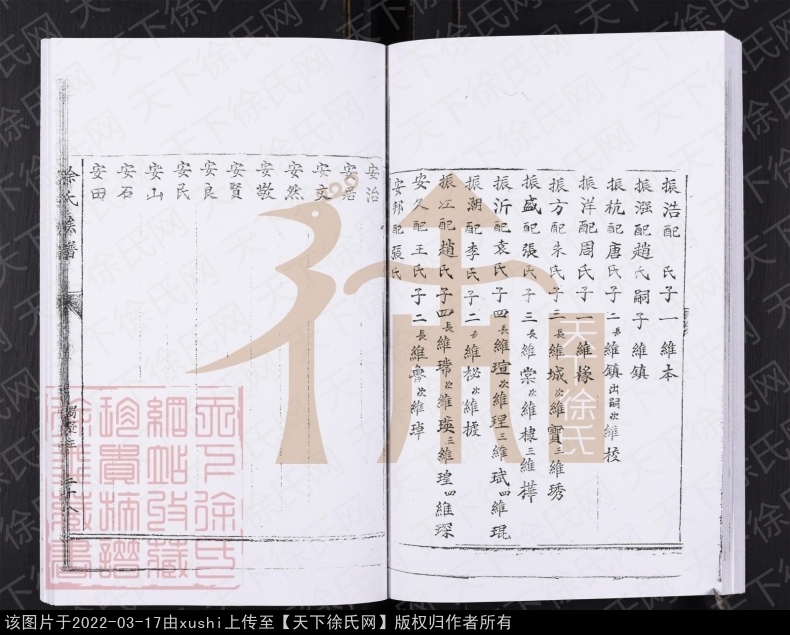 振浩配　氏子一維本
振强配趙氏嗣子維鎮
振杭配唐氏子二長維鎮出嗣次維校
振洋配周氏子一維椽
振方配朱氏子三長維城次維寶三維琇
振盛配張氏子三長維棠次維棣三維樺
振沂配袁氏子四長維瑄次維理三維珷四維琨
振潮配李氏子二長維松次維
振江配趙氏子四長維瑺次維瑛三維瑝四維琛
安久配王氏子二長維魯次維璋
安邦配張氏
安治
安居
安文
安然
安敬
安賢
安良
安民
安山
安石
安田
徐氏族譜
天下徐氏
该图片于2022-03-17由xushi上传至【天下徐氏网】版权归作者所有